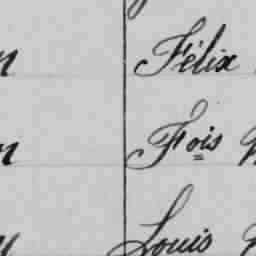 n Félix
n Fois
Louis